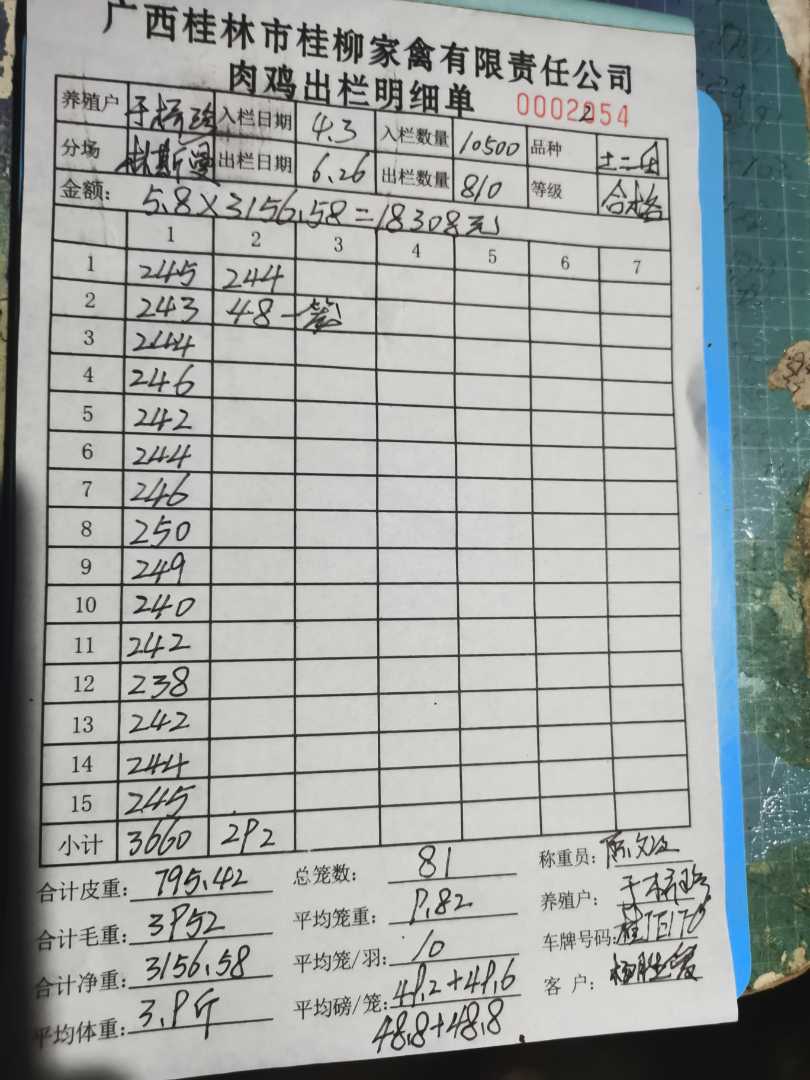 广西桂林市桂柳家禽有限责任公司
肉鸡出栏明细单 0002054
2
养殖户 入栏日期 4.3 入栏数量 10500 品种 土二
分场 林斯 出栏日期 6.26 出栏数量 810 等级 合格
金额: 5.8×3156.58=18308元
1 2 3 4 5 6 7
1 245 244
2 243 48一笼
3 244
4 246
5 242
6 244
7 246
8 250
9 249
10 240
11 242
12 238
13 242
14 244
15 245
小计 3660 292
合计皮重: 795.42 总笼数: 81 称重员: 陈
合计毛重: 3952 平均笼重: 9.82 养殖户:
合计净重: 3156.58 平均笼/羽: 10 车牌号码: 桂
平均体重: 3.9斤 平均磅/笼: 49.2+49.6 客户: 杨胜
48.8+48.8